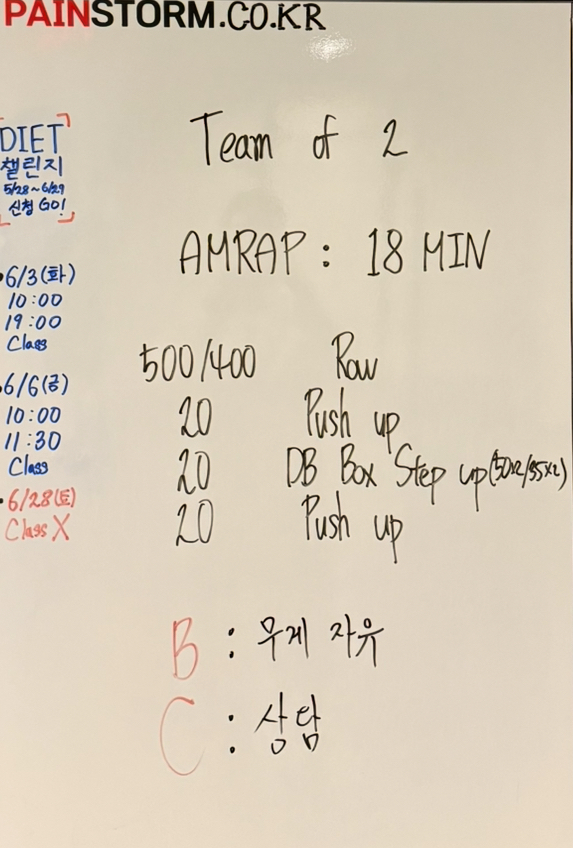 PAINSTORM.CO.KR
DIET
챌린지
5/28~6/29
신청 GO!
•6/3(화)
10:00
19:00
Class
•6/6(금)
10:00
11:30
Class
•6/28(토)
Class X
Team of 2
AMRAP : 18 MIN
500/400 Row
20 Push up
20 DB Box Step up(50x2/35x2)
20 Push up
B : 무게 자유
C : 상담